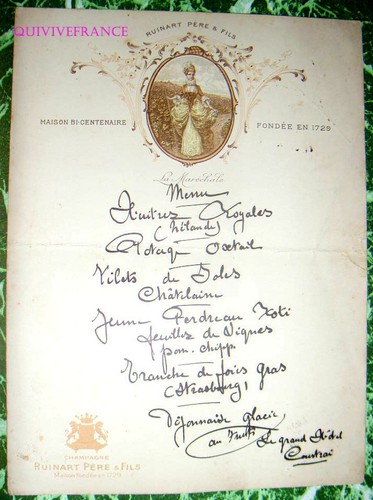 QUIVIVEFRANCE
RUINART PÈRE & FILS
MAISON BI-CENTENAIRE
FONDÉE EN 1729
La Maréchale
Menu
Huitres Royales
(Zélande)
Potage Oxtail
Filets de Soles
Châtelaine
Jeune Perdreau Roti
feuilles de Vignes
pom. chipp
Tranche de foies gras
(Strasbourg)
Dijonnaise glacée
au
Le grand Hôtel
Courtrai
CHAMPAGNE
RUINART PÈRE & FILS
Maison fondée en 1729